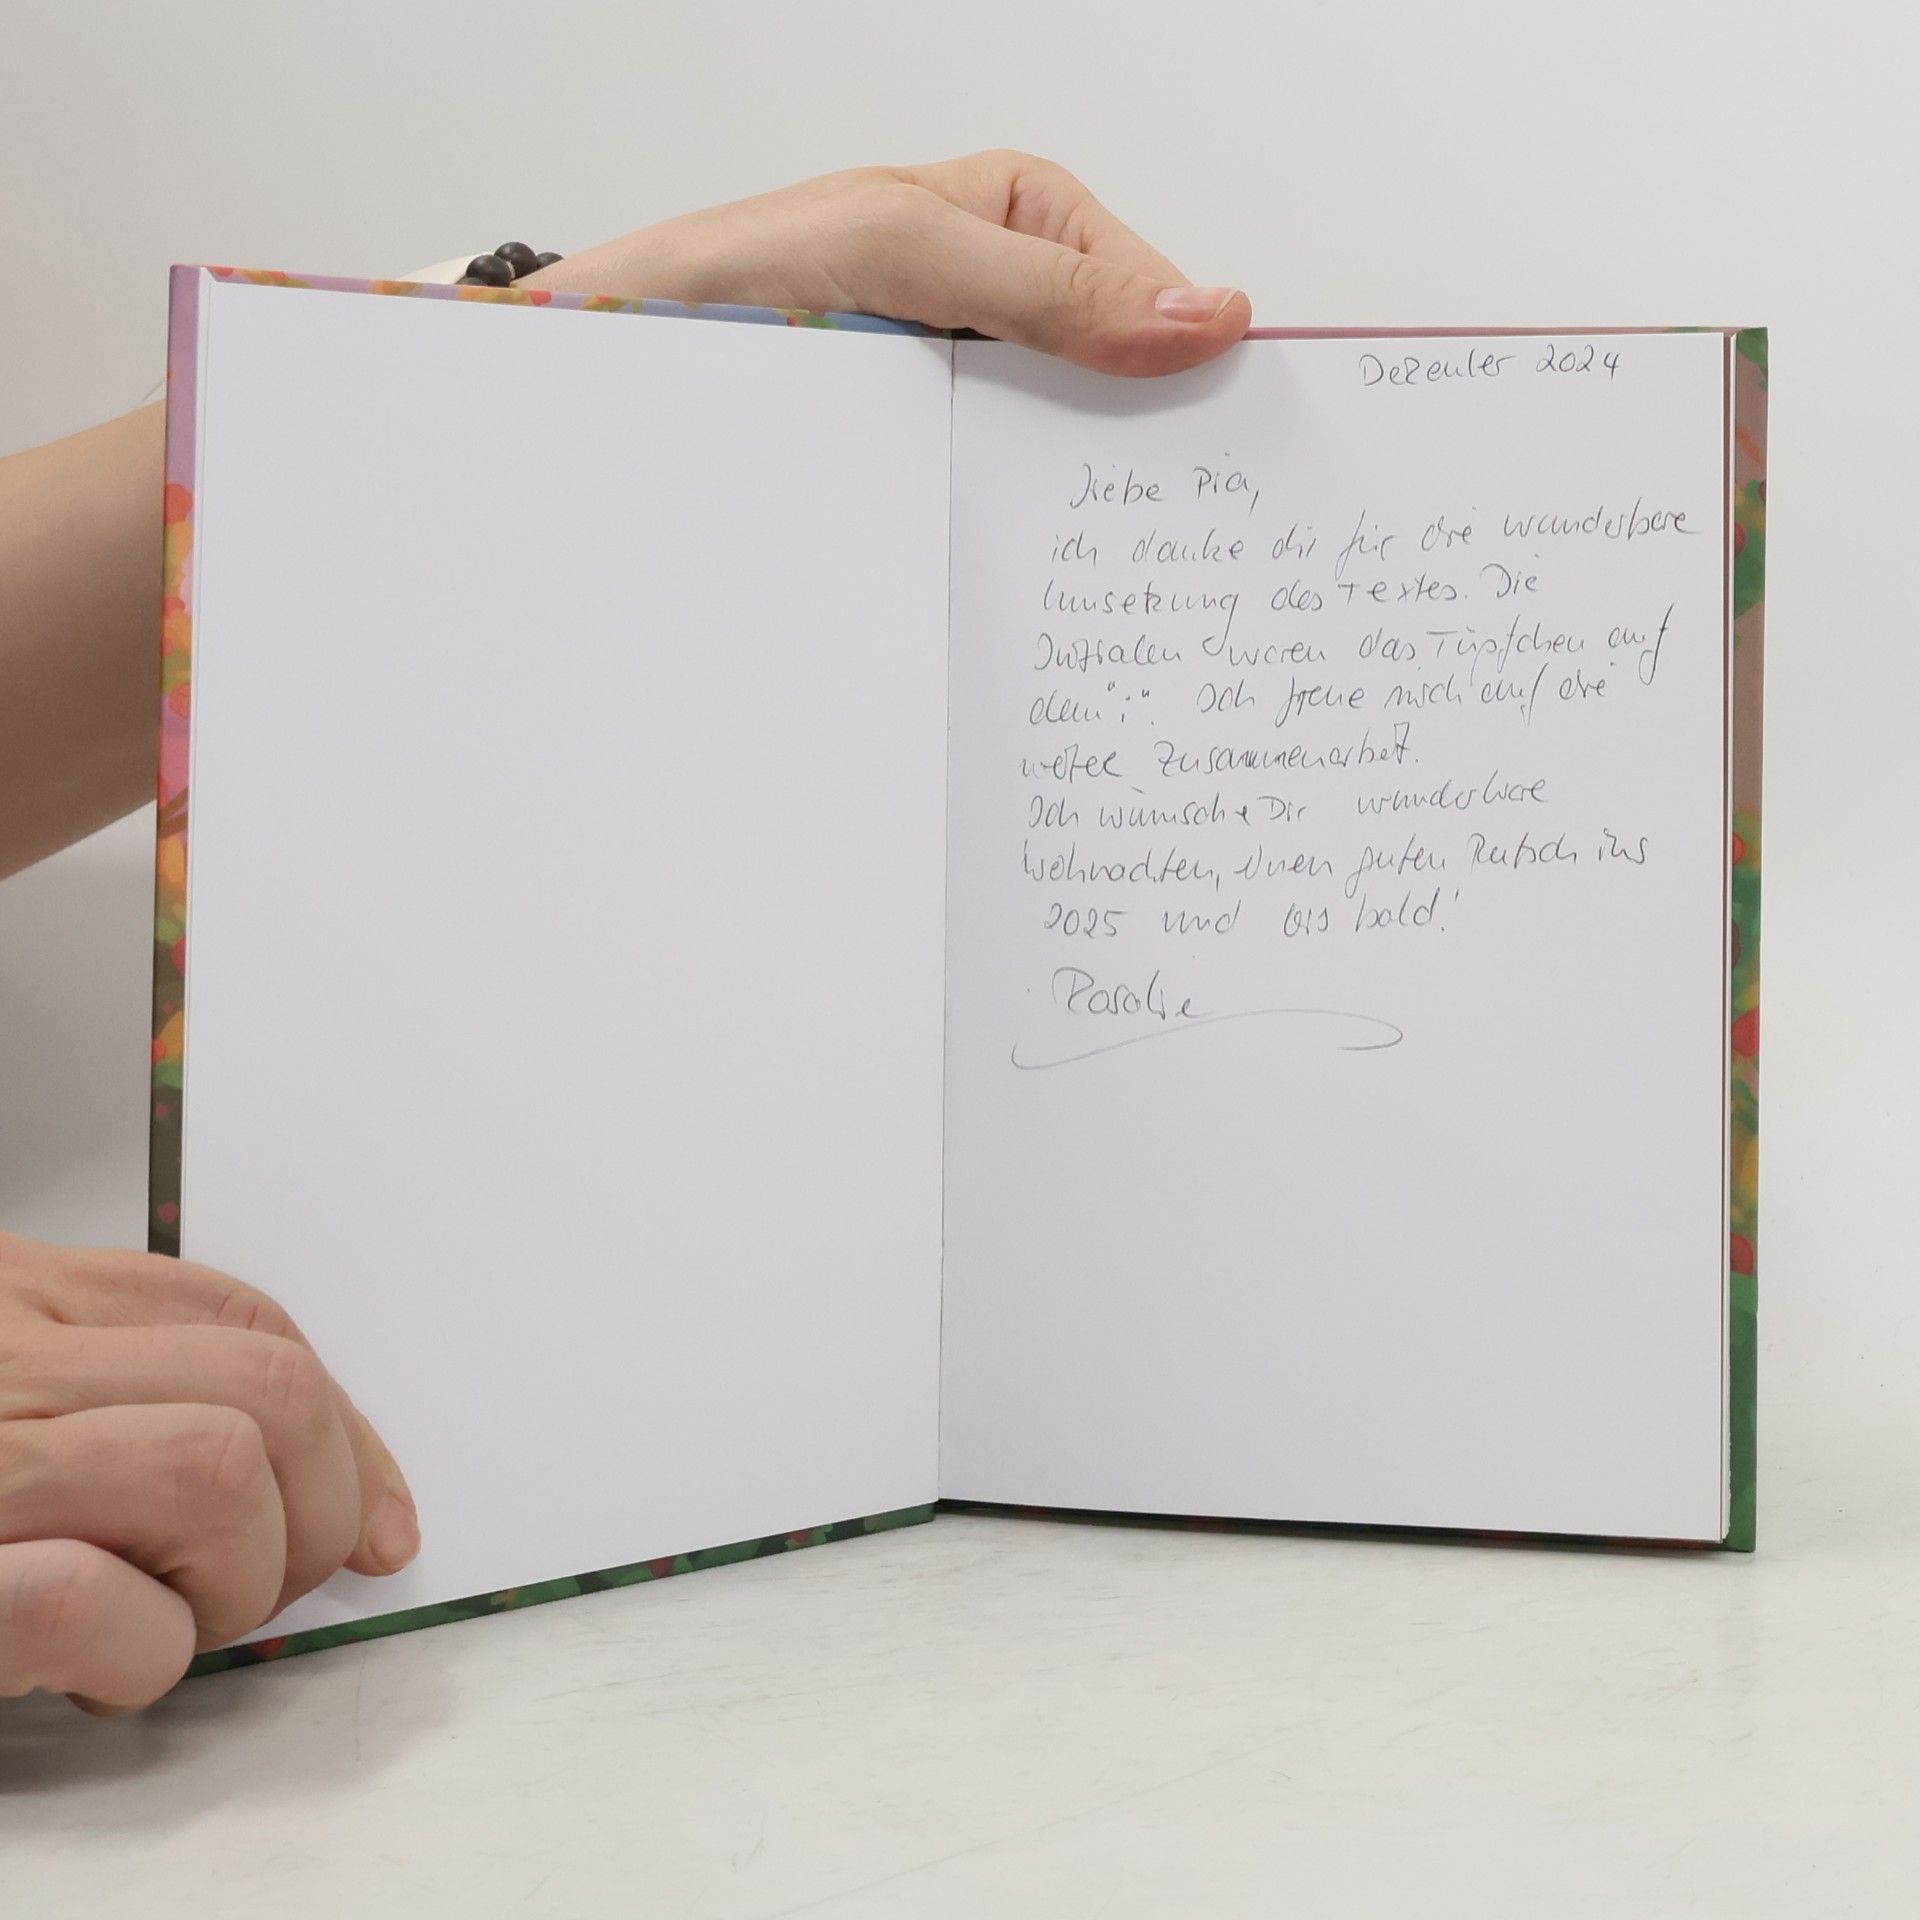 Dezember 2024
Liebe Pia,
ich danke dir für die wunderbare
Umsetzung des Textes. Die
Initialen waren das Tüpfchen auf
dem "i". Ich freue mich auf die
weitere Zusammenarbeit.
Ich wünsche Dir wunderbare
Weihnachten, einen guten Rutsch ins
2025 und bis bald!
Rosalie